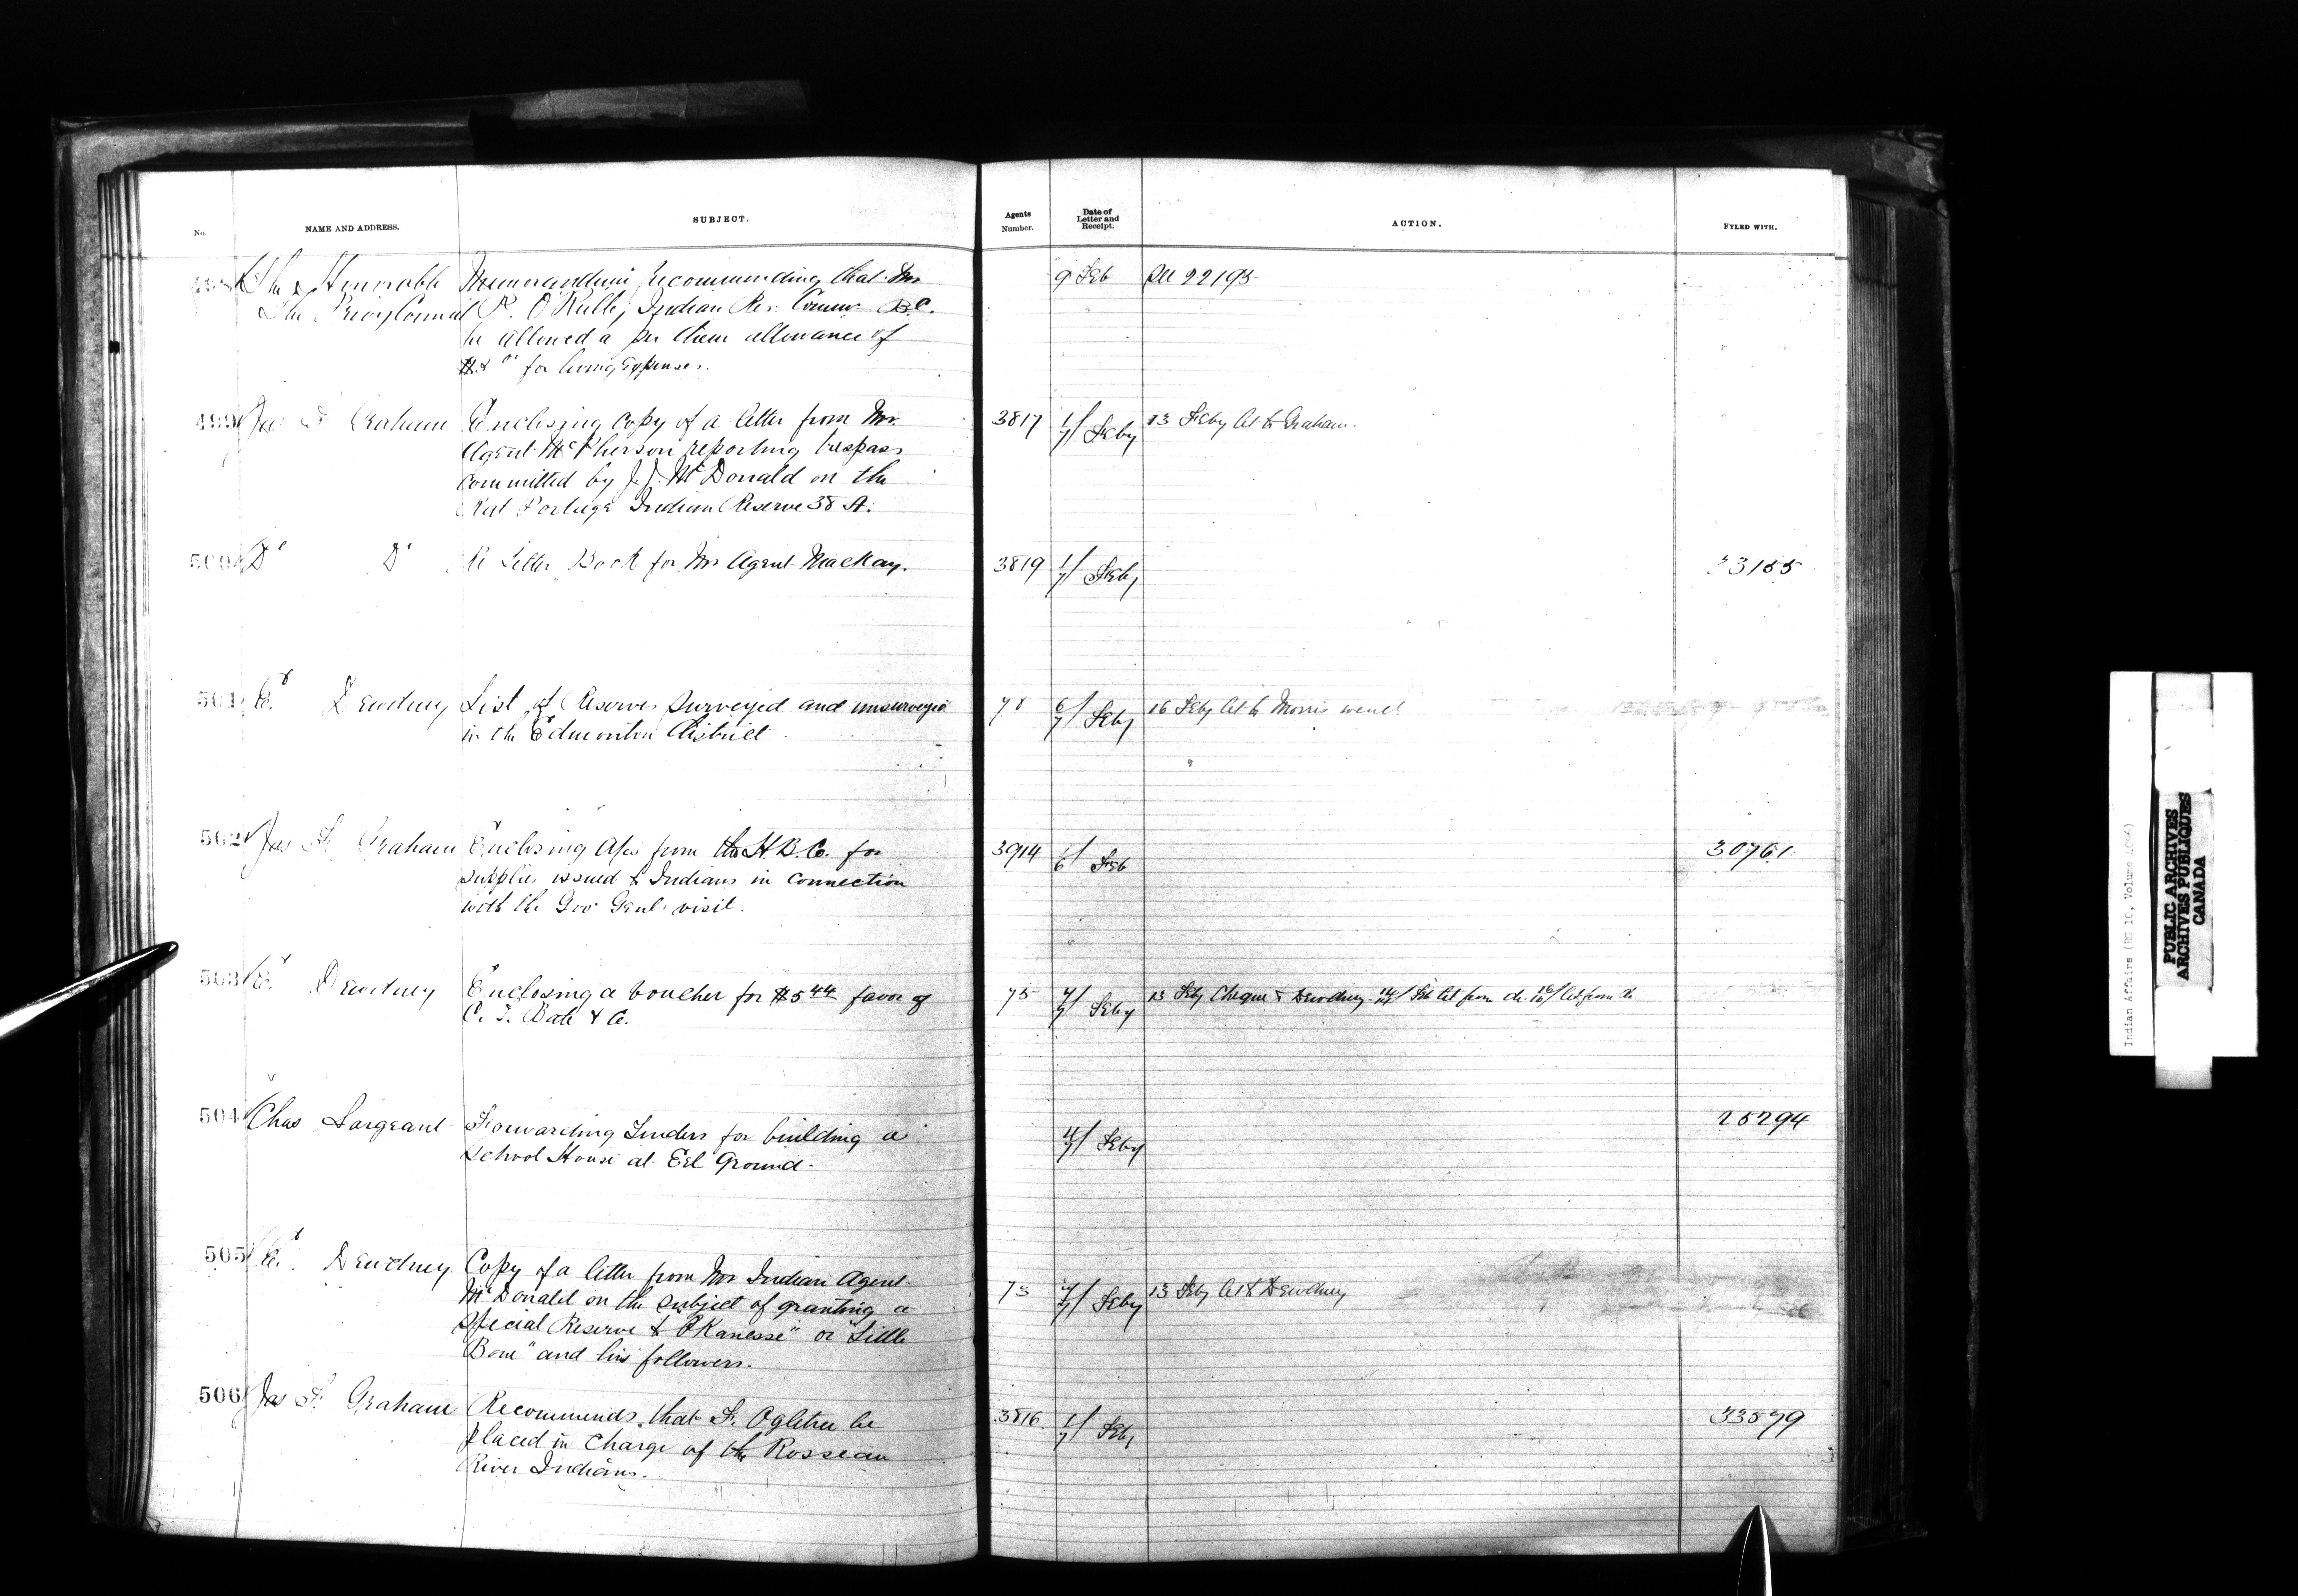 No. NAME AND ADDRESS. SUBJECT. Agents Number. Date of Letter and Receipt. ACTION. FYLED WITH.
498 The Honorable Memorandum recommending that Mr 9 Feb 22195
The Privy Council P. O'Reilly Indian Res. Commr B.C.
be allowed a per diem allowance of
for living expenses.
499 Jas F. Graham Enclosing copy of a letter from Mr. 3817 1/7 Feby 13 Feby Let to Graham.
Agent McPherson reporting trespass
committed by J. J. McDonald on the
Rat Portage Indian Reserve 38 A.
500 Do Do Re Letter Book for Mr Agent MacKay. 3819 1/7 Feby 33155
501 E. Dewdney List of Reserves surveyed and unsurveyed 78 6/7 Feby 16 Feby Let to Morris
in the Edmonton District.
502 Jas F. Graham Enclosing A/cs from the H.B.Co. for 3914 1/6 Feb 30761
supplies issued to Indians in connection
with the Gov Genl's visit.
503 E. Dewdney Enclosing a voucher for $5 44 favor of 75 Feby 13 Feby Cheque to Dewdney Feb Let from do Let from do
C. T. Bate & Co.
504 Chas Sargeant Forwarding Tenders for building a 4/7 Feby 25294
School House at Eel Ground.
505 E. Dewdney Copy of a letter from Mr Indian Agent 73 Feby 13 Feby Let to Dewdney
McDonald on the subject of granting a
special Reserve to "OKanesse" or "Little
Bone" and his followers.
506 Jas F. Graham Recommends that F. Ogletree be 3816 1/7 Feby 33579
placed in charge of the Rosseau
River Indians.
Indian Affairs (RG 10, Volume
PUBLIC ARCHIVES
ARCHIVES PUBLIQUES
CANADA